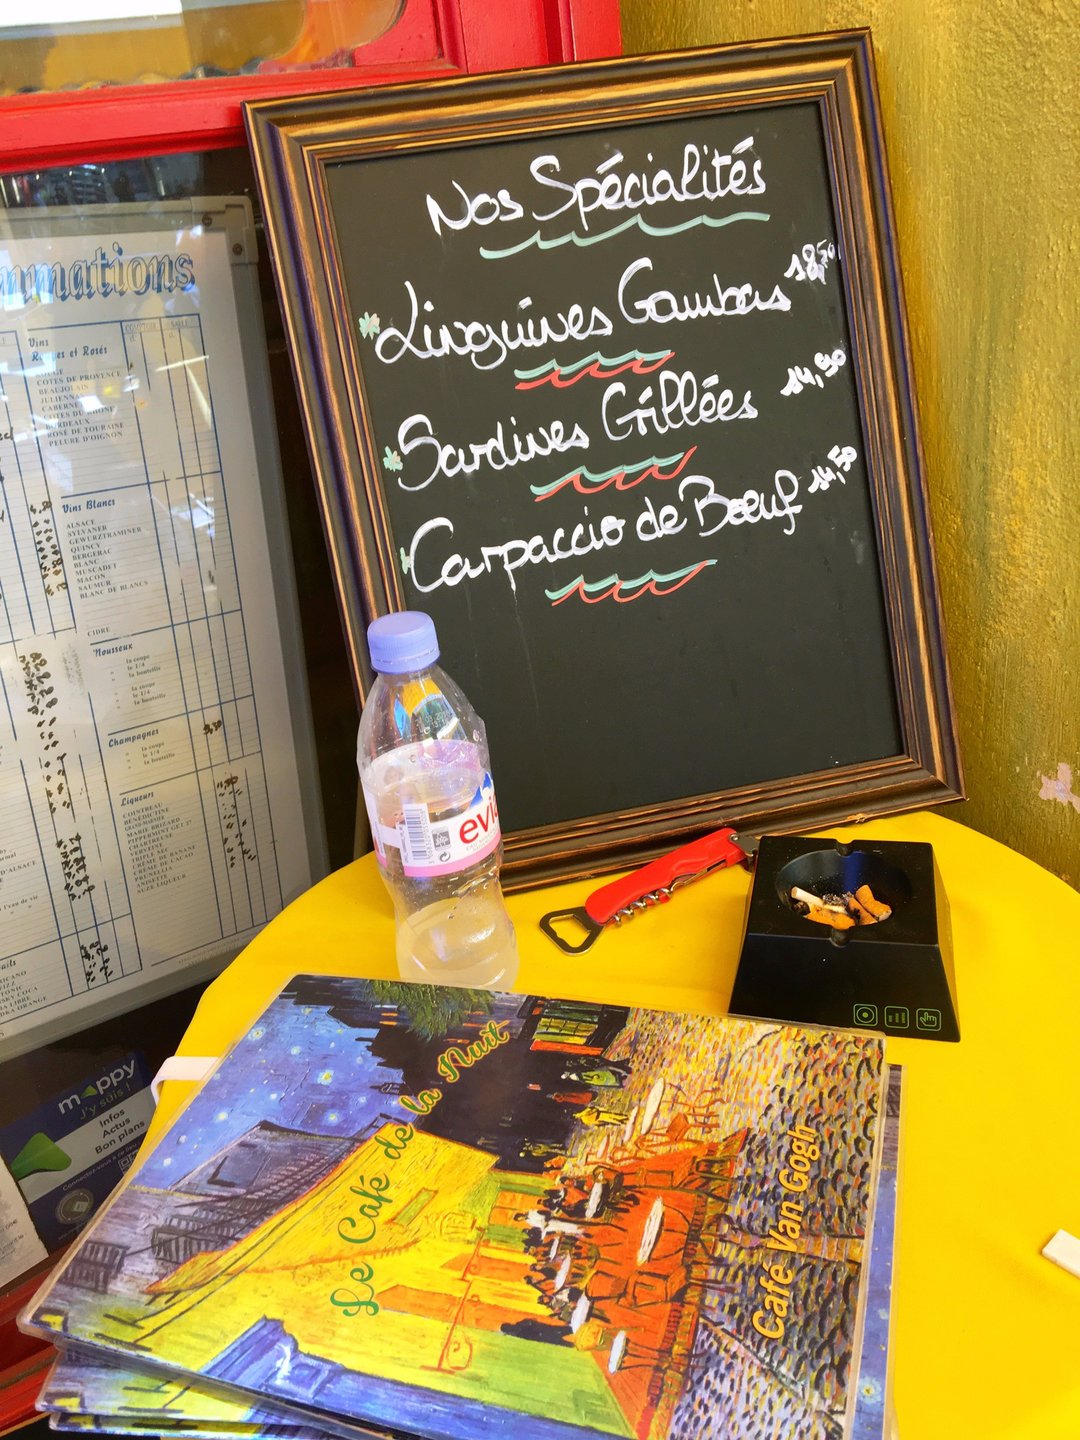 Nos Spécialités
Linguines Gambas 18,50
Sardines Grillées 14,50
Carpaccio de Bœuf 14,50
mmations
COMPTOIR SALLE
Vins
Rouges et Rosés
ROUGE
COTES DE PROVENCE
BEAUJOLAIS
JULIENNA
CABERNE
COTES DU RHONE
BORDEAUX
ROSÉ DE TOURAINE
PELURE D'OIGNON
Vins Blancs
ALSACE
SYLVANER
GEWURZTRAMINER
QUINCY
BERGERAC
BLANC
MUSCADET
MACON
SAUMUR
BLANC DE BLANCS
CIDRE
Mousseux
la coupe
le 1/4
la bouteille
la coupe
le 1/4
la bouteille
Champagnes
la coupe
le 1/4
la bouteille
Liqueurs
COINTREAU
BÉNÉDICTINE
MARIE BRIZARD
PIPPERMINT GET 27
CHARTREUSE
VERVEINE
TRIPLE SEC
CRÈME DE BANANE
CRÈME DE CACAO
PRUNELLE
ANISETTE
SUZE LIQUEUR
D'ALSACE
eau de vie
RICANO
IZZ
TONIC
SKY COCA
A LIBRE
DKA ORANGE
mappy
J'y suis !
Infos
Actus
Bon plans
evia
Le Café de la Nuit
Café Van Gogh